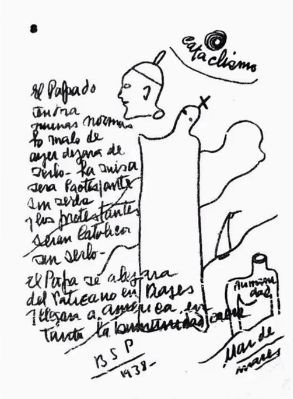 8
cataclismo
El Papado
tendra
nuevas normas
lo malo de
ayer dejara de
serlo - La misa
sera Protestante
sin serlo
y los protestantes
seran Catolicos
sin serlo -
El Papa se alejara
del Vaticano en
y llegara a America en
tanto la humanidad caera
Humani
dad
Mar de
mares
BSP
1938-